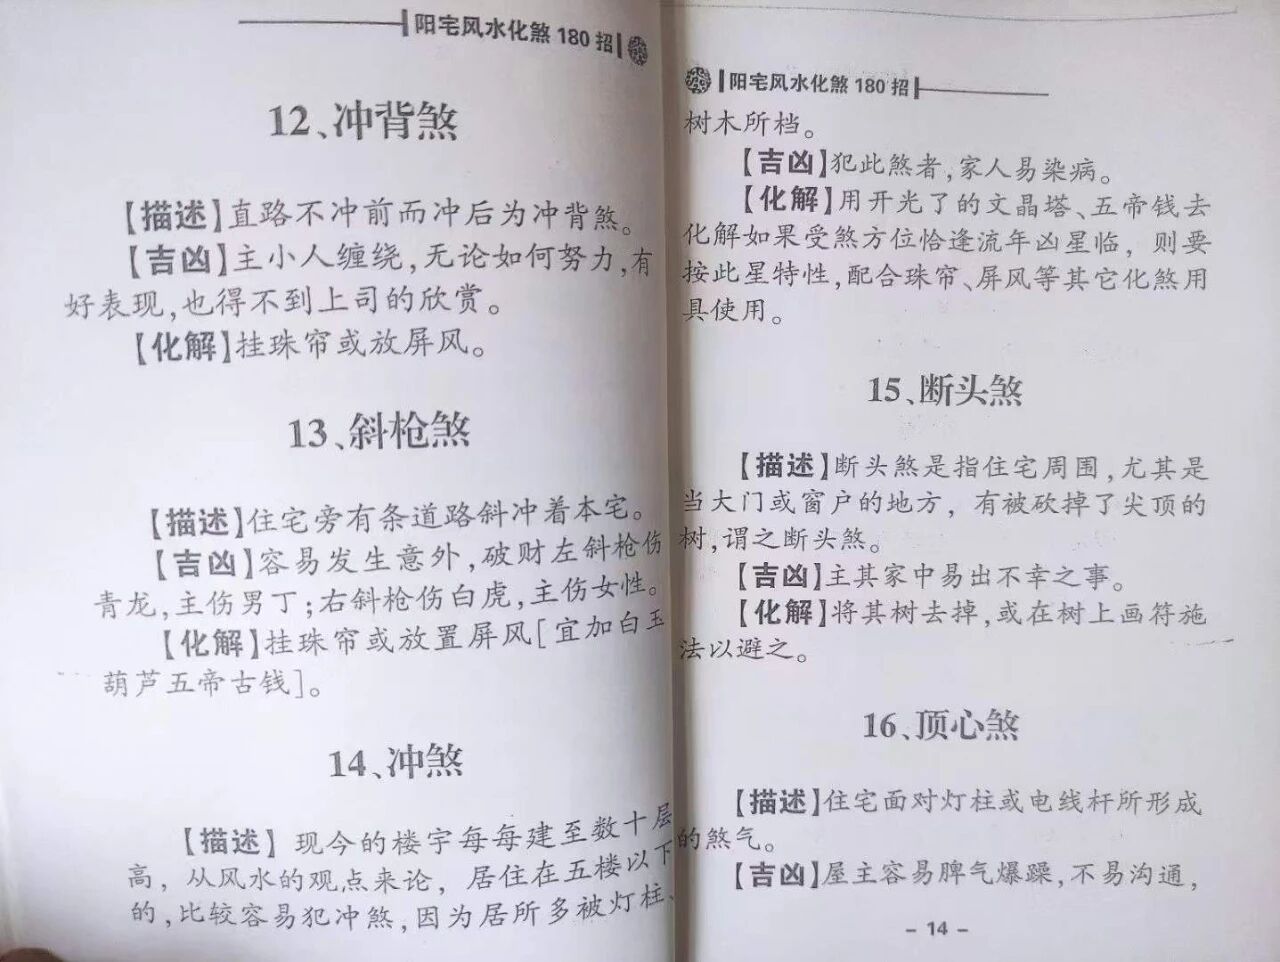 阳宅风水化煞180招
12、冲背煞
【描述】直路不冲前而冲后为冲背煞。
【吉凶】主小人缠绕,无论如何努力,有
好表现,也得不到上司的欣赏。
【化解】挂珠帘或放屏风。
13、斜枪煞
【描述】住宅旁有条道路斜冲着本宅。
【吉凶】容易发生意外,破财左斜枪伤
青龙,主伤男丁;右斜枪伤白虎,主伤女性。
【化解】挂珠帘或放置屏风[宜加白玉
葫芦五帝古钱]。
14、冲煞
【描述】现今的楼宇每每建至数十层
高，从风水的观点来论，居住在五楼以下
的,比较容易犯冲煞,因为居所多被灯柱、
阳宅风水化煞180招
树木所档。
【吉凶】犯此煞者,家人易染病。
【化解】用开光了的文晶塔、五帝钱去
化解如果受煞方位恰逢流年凶星临，则要
按此星特性,配合珠帘、屏风等其它化煞用
具使用。
15、断头煞
【描述】断头煞是指住宅周围,尤其是
当大门或窗户的地方，有被砍掉了尖顶的
树,谓之断头煞。
【吉凶】主其家中易出不幸之事。
【化解】将其树去掉,或在树上画符施
法以避之。
16、顶心煞
【描述】住宅面对灯柱或电线杆所形成
的煞气。
【吉凶】屋主容易脾气爆躁,不易沟通,
- 14 -